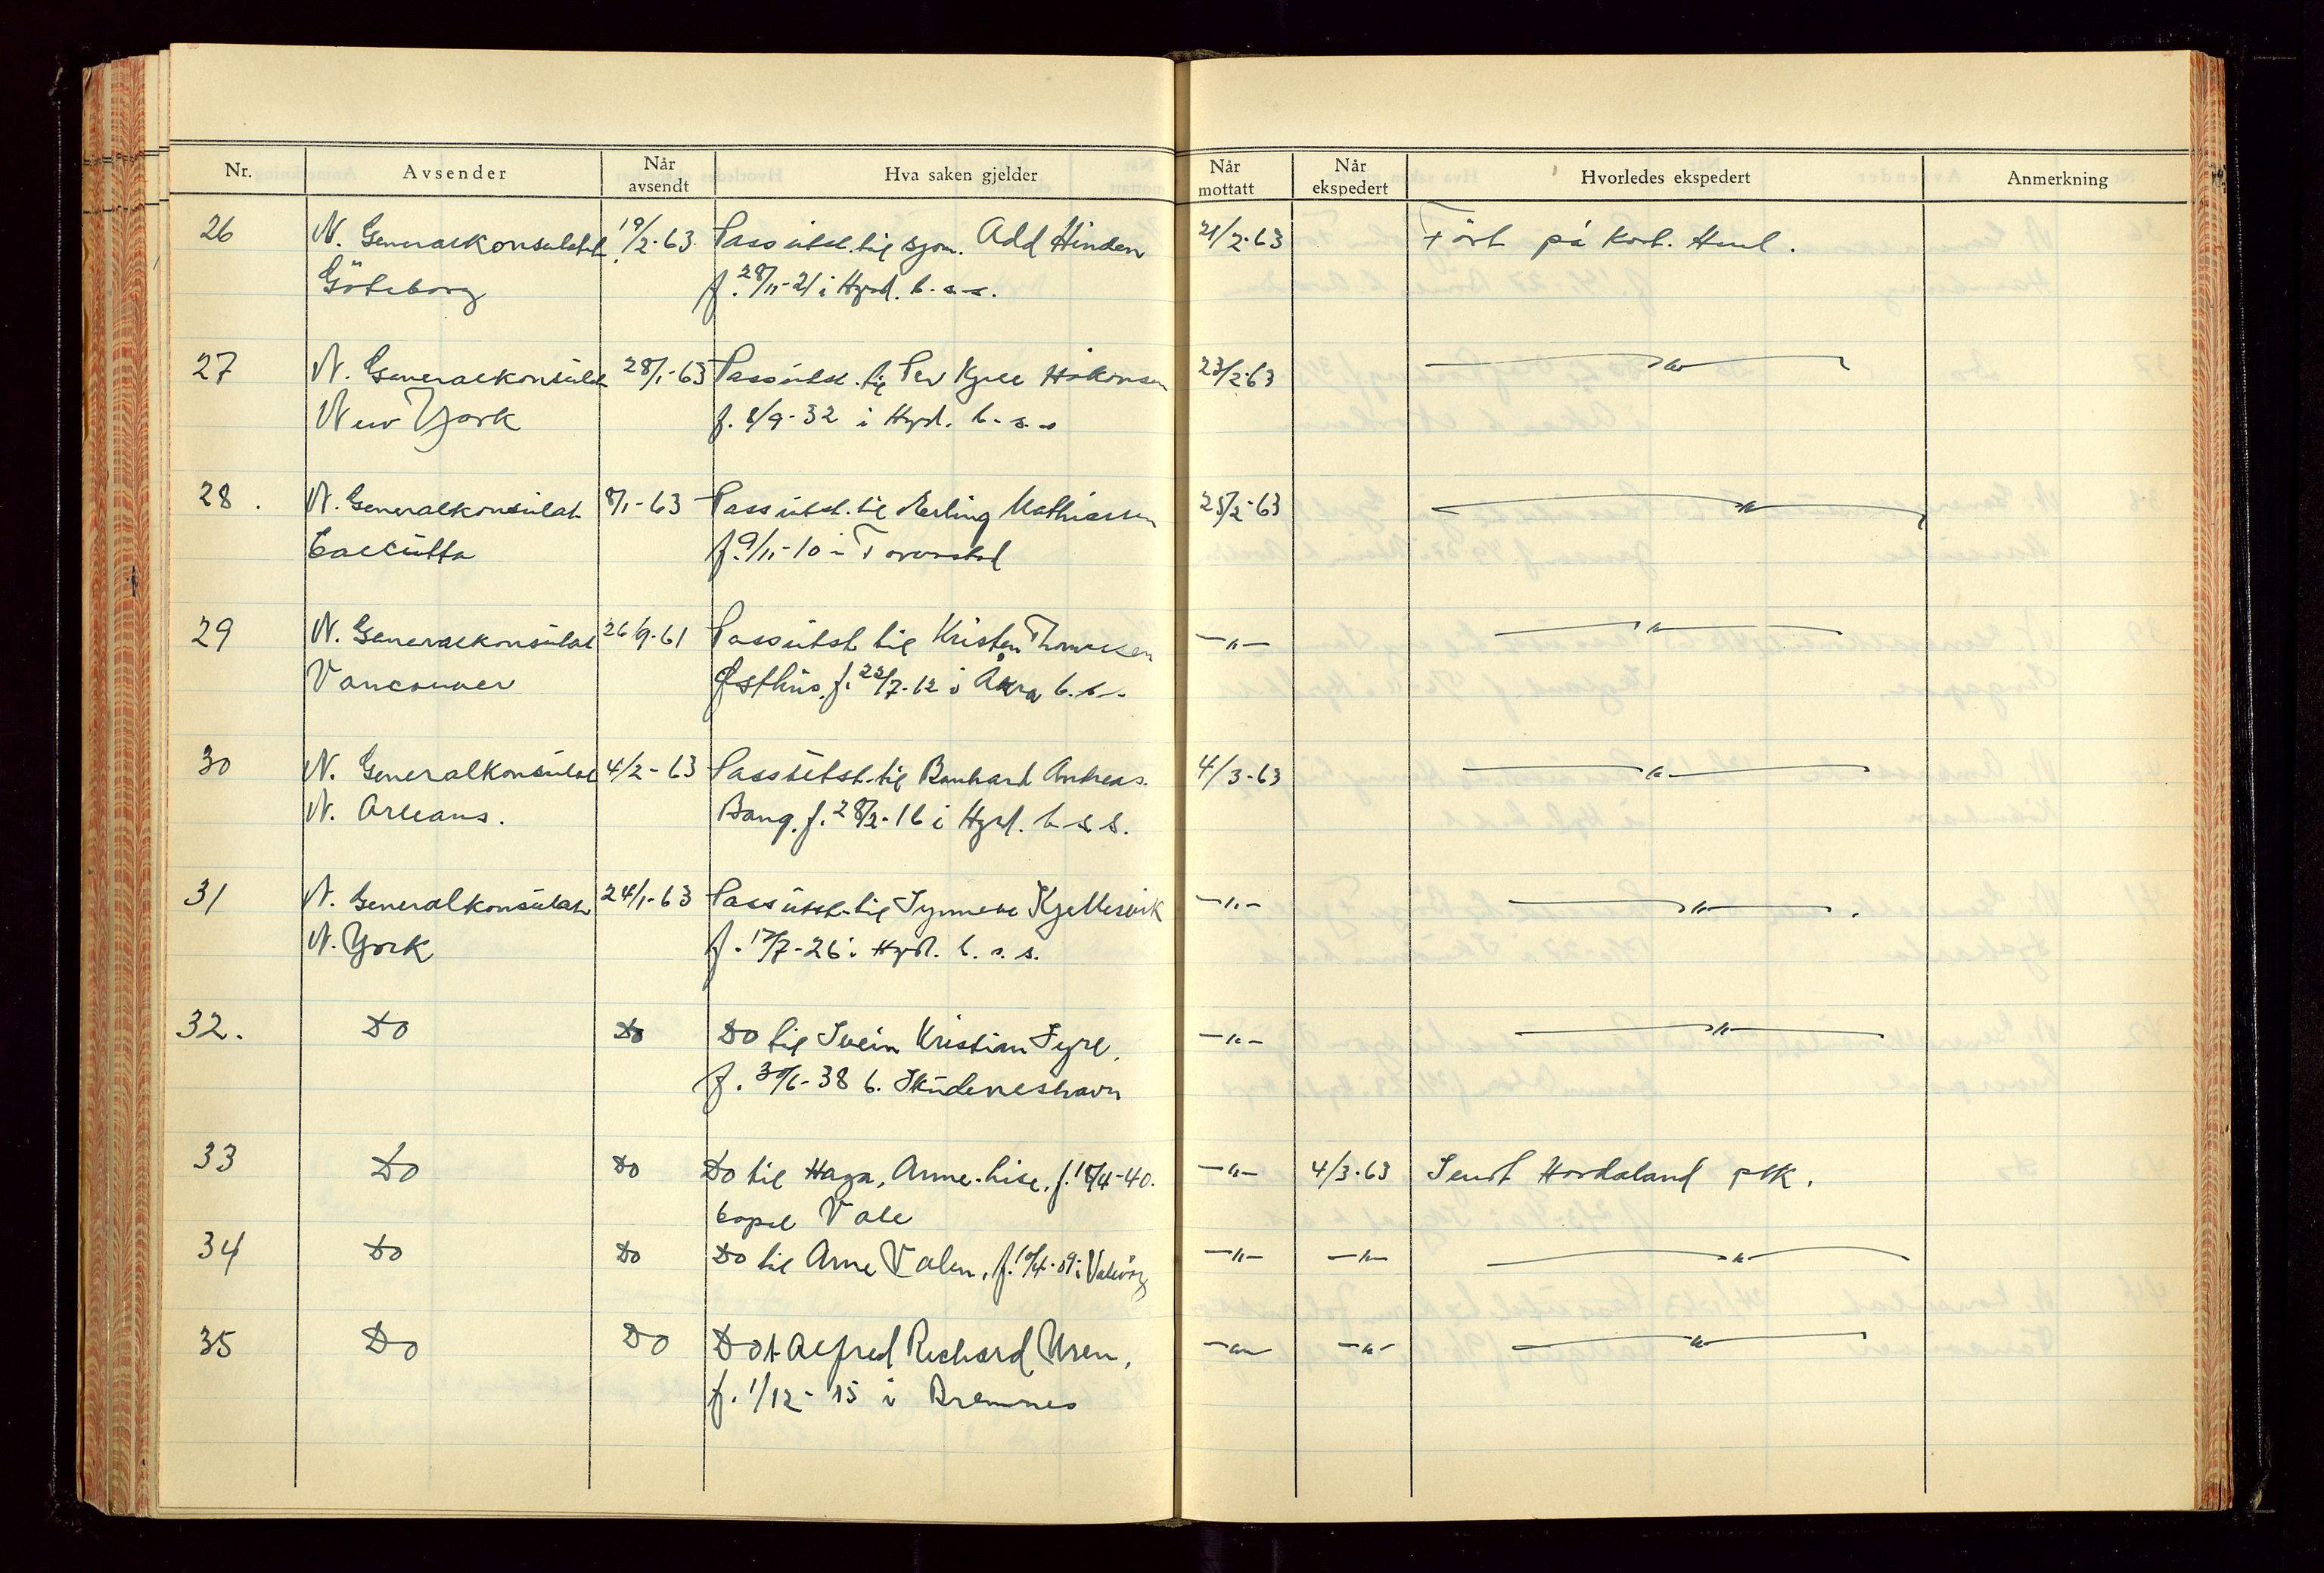 Nr. Avsender Når avsendt Hva saken gjelder Når mottatt Når ekspedert Hvorledes ekspedert Anmerkning
26 N. Generalkonsulat 19/2-63. Passutst. til sjøm. Odd Hinden 21/2-63 Ført på kort. Henl.
Göteborg f. 28/11-21 i Hgsd. b. s. s.
27 N. Generalkonsulat 28/1-63 Passutst. til Per Kjell Håkonsen 23/2-63 —"—
New York f. 8/9-32 i Hgsd. b. s. s
28. N. Generalkonsulat 8/1-63 Passutst. til Erling Mathiassen 25/2-63 —"—
Calcutta f. 9/11-10 i Torvastad
29 N. Generalkonsulat 26/9-61 Passutst til Kristen Thomassen —"— —"—
Vancouver Østhus, f. 22/7-12 i Åkra b. s.
30 N. Generalkonsulat 4/2-63 Passutst. til Bernhard Andreas 4/3-63 —"—
N. Orleans. Bang, f. 28/2-16 i Hgsd. b. s. s.
31 N. Generalkonsulat 24/1-63 Passutst. til Synneve Kjellesvik —"— —"—
N. York f. 17/7-26 i Hgsd. b. s. s.
32. Do Do Do til Svein Kristian Syre, —"— —"—
f. 30/6-38 b. Skudeneshavn
33 Do Do Do til Haga, Anne-Lise, f. 18/4-40. —"— 4/3-63 Sendt Hordaland ptk.
bopel Vale
34 Do Do Do til Arne Valen, f. 10/4-09 i —"— —"— —"—
35 Do Do Do t Alfred Richard Uren, —"— —"— —"—
f. 1/12-15 i Bremnes